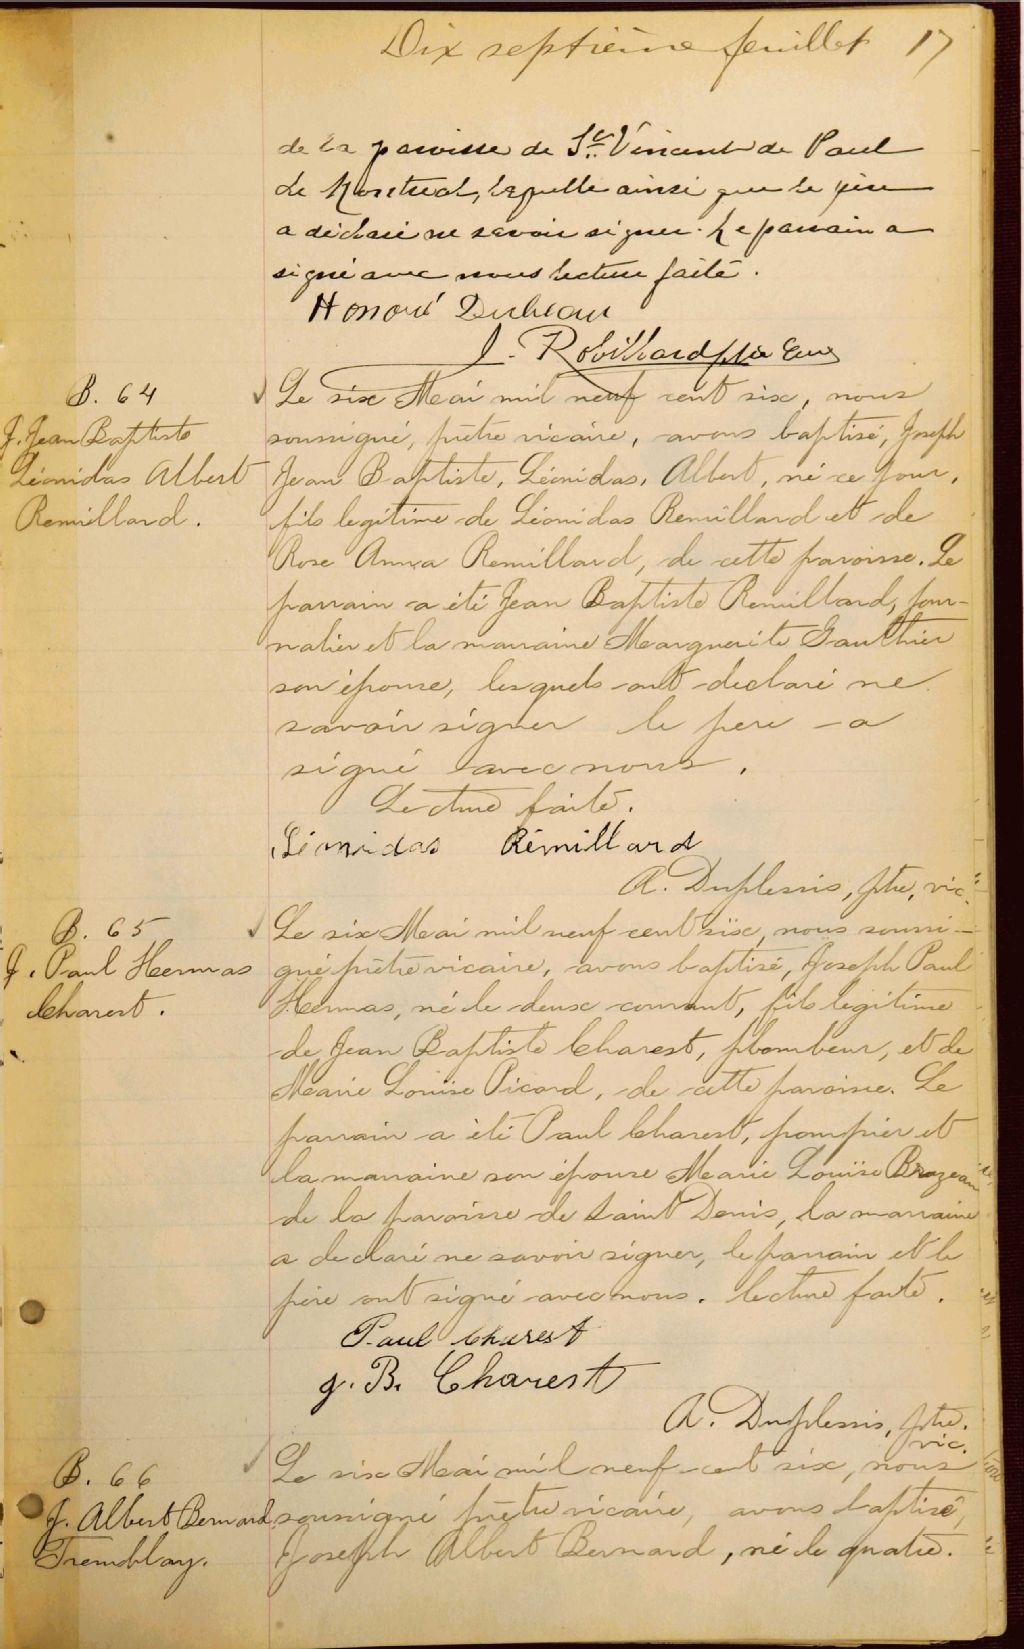 Dix septième feuillet 17
de la paroisse de St. Vincent de Paul
de Montreal, laquelle ainsi que le père
a déclaré ne savoir signer. Le parrain a
signé avec nous lecture faite.
Honoré Dubeau
J. Robillard ptre Curé
B. 64
J. Jean Baptiste
Léonidas Albert
Remillard.
Le six Mai mil neuf cent six, nous
soussigné, prêtre vicaire, avons baptisé, Joseph
Jean Baptiste, Léonidas, Albert, né ce jour,
fils legitime de Léonidas Remillard et de
Rose Anna Remillard, de cette paroisse. Le
parrain a été Jean Baptiste Remillard, jour-
nalier et la marraine Marguerite Gauthier
son épouse, lesquels ont declaré ne
savoir signer le pere a
signé avec nous.
Lecture faite.
Léonidas Rémillard
A. Duplessis, ptre, vic.
B. 65
J. Paul Hermas
Charest.
Le six Mai mil neuf cent six, nous soussi-
gné prêtre vicaire, avons baptisé, Joseph Paul
Hermas, né le deux courant, fils legitime
de Jean Baptiste Charest, plombeur, et de
Marie Louise Picard, de cette paroisse. Le
parrain a été Paul Charest, pompier et
la marraine son épouse Marie Louise Brazeau
de la paroisse de Saint Denis, la marraine
a declaré ne savoir signer, le parrain et le
père ont signé avec nous. lecture faite.
Paul Charest
J. B. Charest
A. Duplessis, ptre.
vic.
B. 66
J. Albert Bernard
Tremblay.
Le six Mai mil neuf cent six, nous
soussigné prêtre vicaire, avons baptisé,
Joseph Albert Bernard, né le quatre.